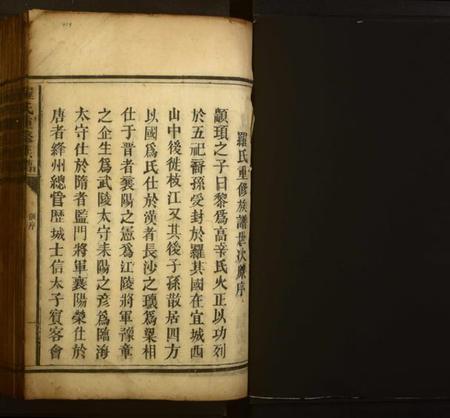 羅氏重修族譜世次原序
顓頊之子曰黎爲高辛氏火正以功列
於五祀裔孫受封於羅其國在宜城西
山中後徙枝江又其後子孫散居四方
以國爲氏仕於漢者長沙之瓌爲梁相
仕于晋者襄陽之憲爲江陵將軍豫章
之企生爲武陵太守耒陽之彥爲臨海
太守仕於隋者監門將軍襄陽榮仕於
唐者絳州總管歴城士信太子賓客會